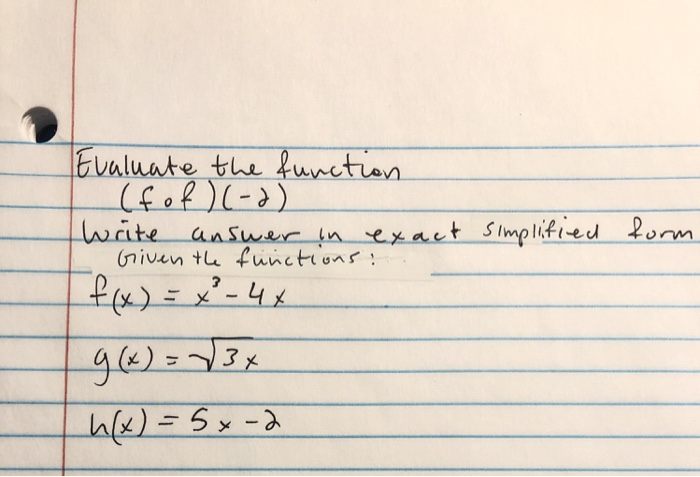 Evaluate the function
(f∘f)(-2)
Write answer in exact simplified form
Given the functions:
f(x) = x³ - 4x
g(x) = √3x
h(x) = 5x - 2